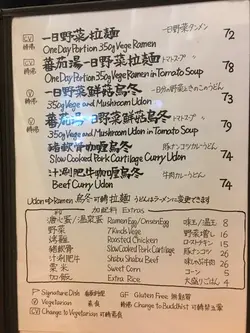 一日野菜拉麵 一日野菜タンメン 72
One Day Portion 350g Vege Ramen
蕃茄湯一日野菜拉麵 トマトスープ 78
One Day Portion 350g Vege Ramen in Tomato Soup
一日野菜鮮菇烏冬 一日分の野菜ときのこうどん 73
350g Vege and Mushroom Udon
蕃茄湯一日野菜鮮菇烏冬 トマトスープ 79
350g Vege and Mushroom Udon in Tomato Soup
豬軟骨咖喱烏冬 豚ナンコツカレーうどん 74
Slow Cooked Pork Cartilage Curry Udon
汁涮肥牛咖喱烏冬 牛肉カレーうどん 74
Beef Curry Udon
Udon ⇨ Ramen 烏冬可轉拉麵 うどんはラーメンに変更できます
加配料 Extras
溏心蛋/温泉蛋 Ramen Egg/Onsen Egg 味玉/温玉 8
野菜 7 Kinds Vege 野菜増し 16
烤雞 Roasted Chicken ローストチキン 15
豬軟骨 Slow Cooked Pork Cartilage 豚ナンコツ 26
汁涮肥牛 Shabu Shabu Beef 味しゃぶ牛肉 26
粟米 Sweet Corn コーン 5
加飯 Extra Rice 大盛り/ごはん 4
Signature Dish 時得 GF Gluten Free 無麩質
Vegetarian 素食
CV Change to Vegetarian 可轉素食 Change to Buddhist 可轉禁五葷